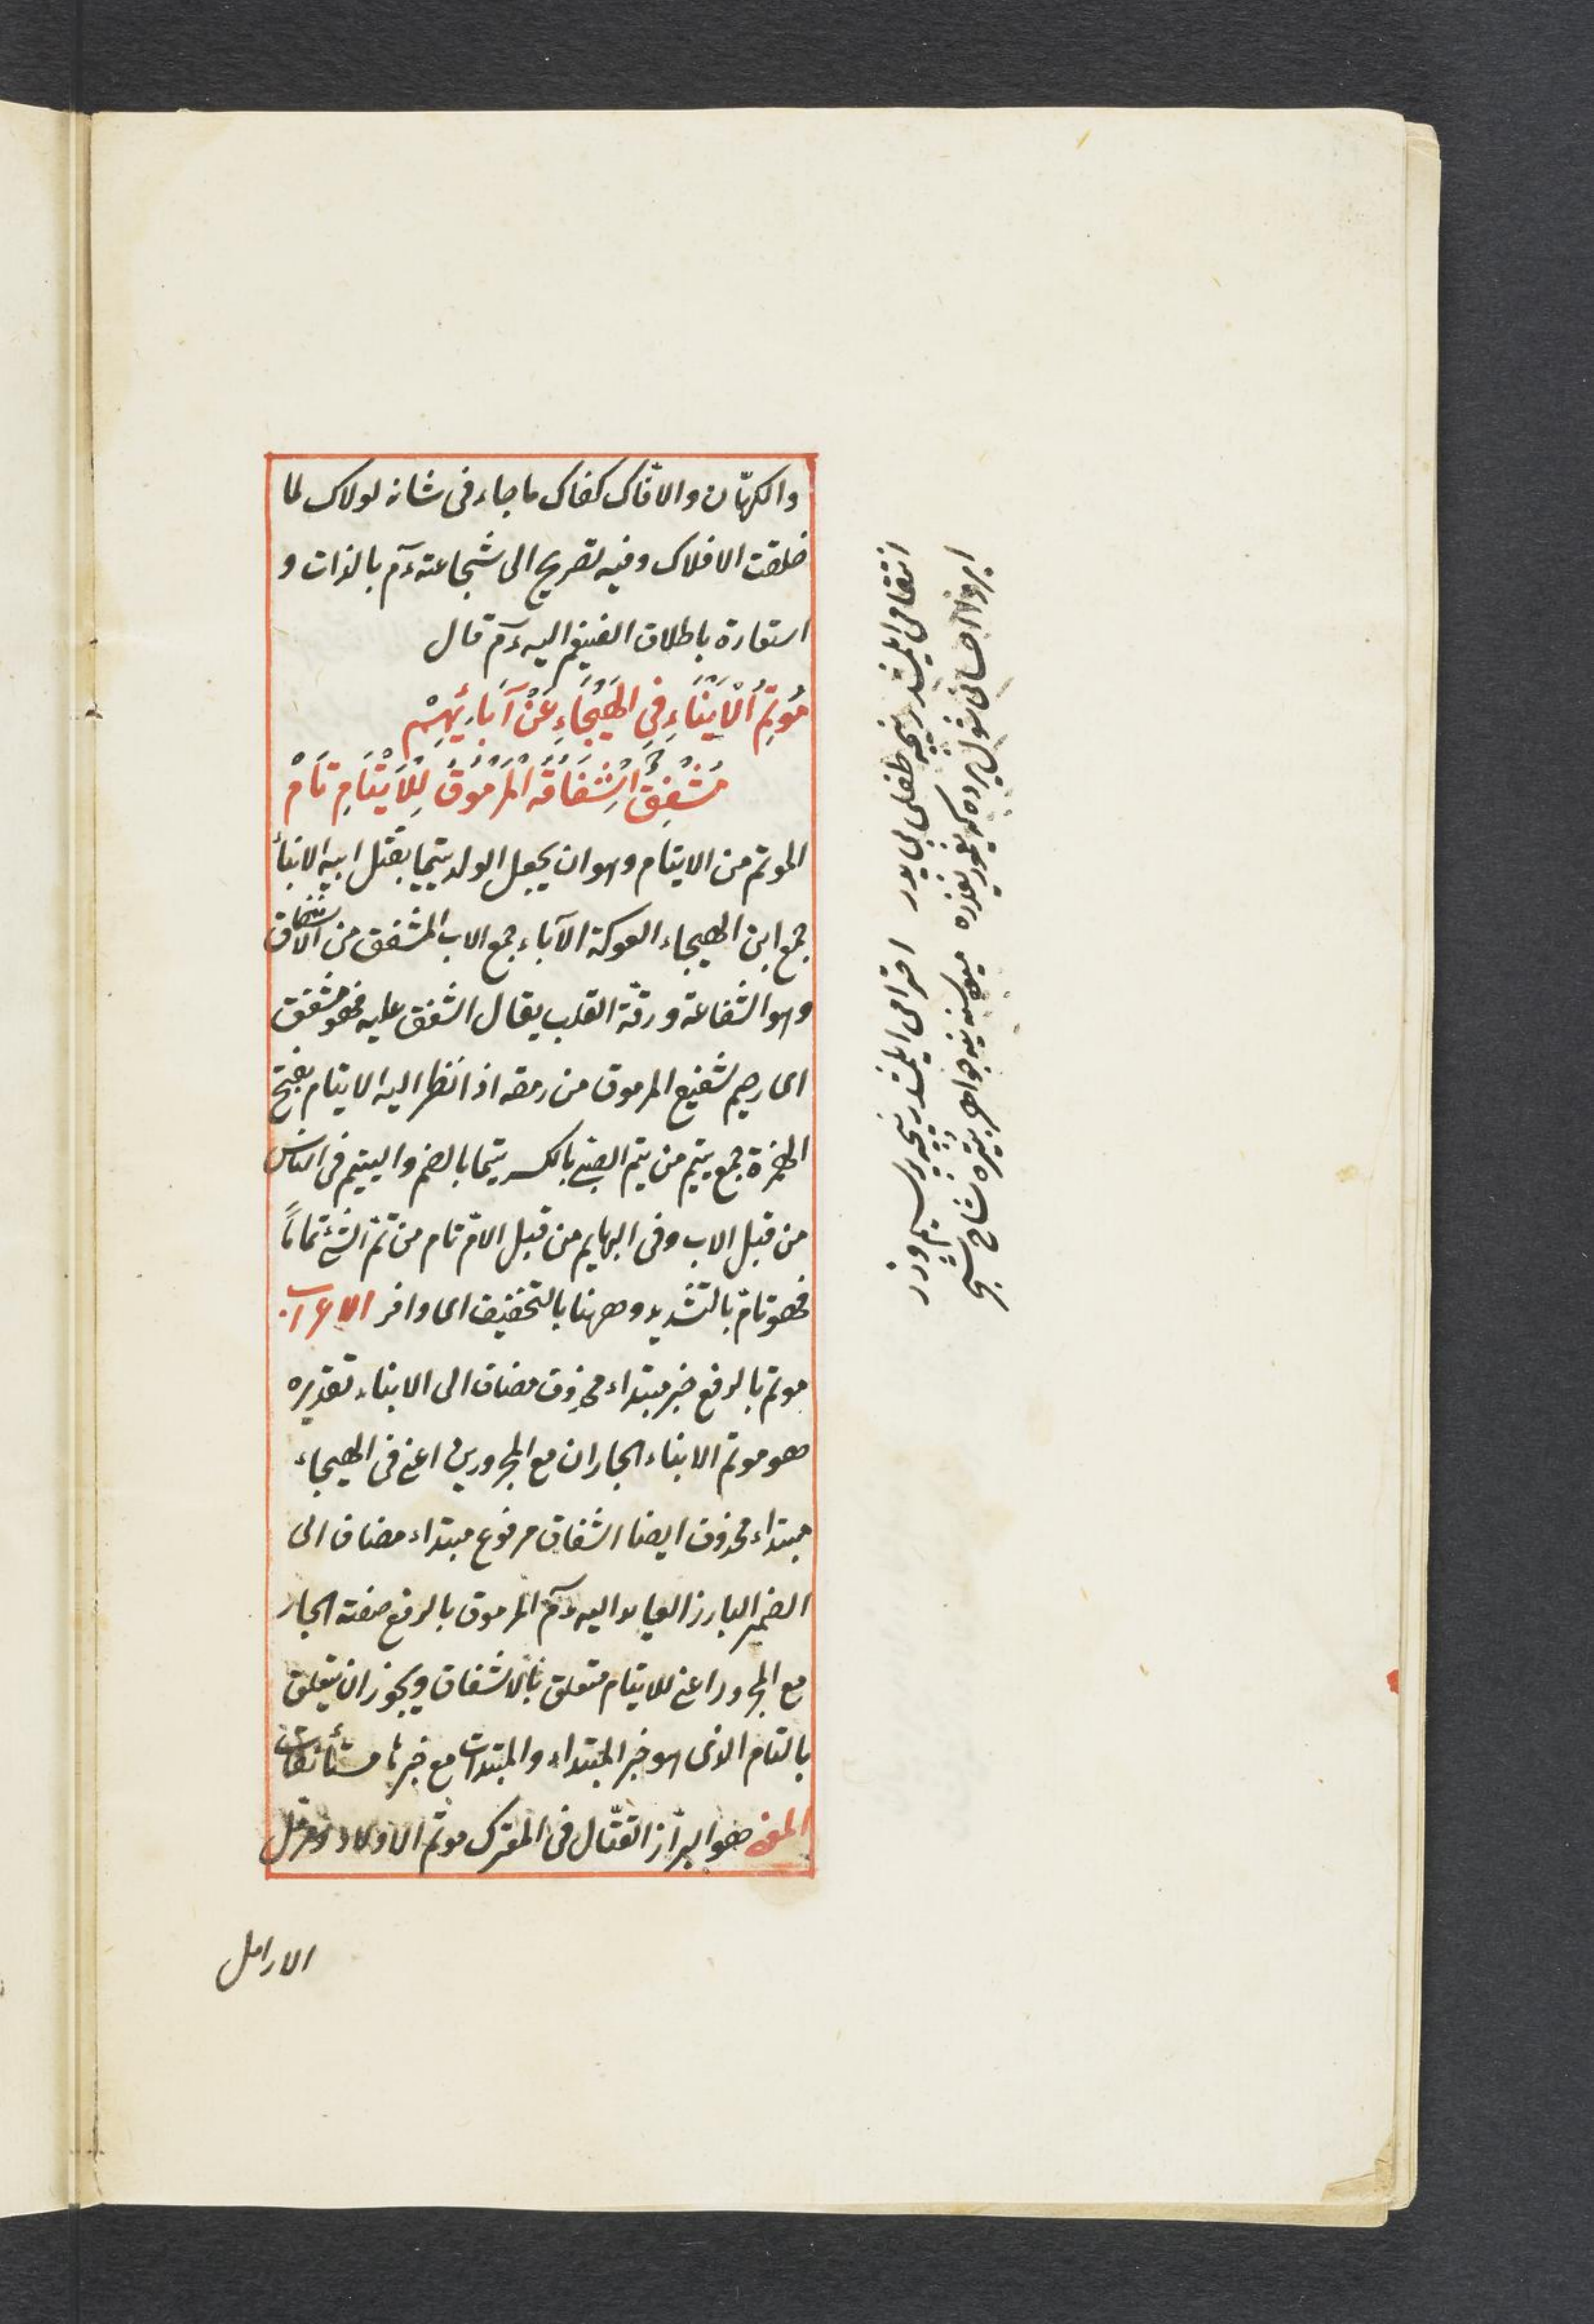 والكهّان والافّاك كفاك ما جاء فى شانه لولاك لما
خلقت الافلاك وفيه تصريح الى شجاعته ءم بالذات و
استعارة باطلاق الضيغم اليه ءم قال
مُوتِمُ الْاَبْنَاءِ فِى الهَيْجَاءِ عَنْ آبَائِهِمْ
مُشْفِقٌ اِشْفَاقُهُ الْمَرْمُوقُ لِلْاَيْتَامِ تَامْ
الموتم من الايتام وهو ان يجعل الولد يتيما بقتل ابيه الابناء
جمع ابن الهيجاء المعركة الآباء جمع الاب المشفق من الاشفاق
وهو الشفاعة ورقّة القلب يقال اشفق عليه فهو مشفق
اى رحيم شفيع المرموق من رمقه اذا نظر اليه الايتام بفتح
الهمزة جمع يتيم من يتم الصبى بالكسر يتما بالضم واليتيم فى الناس
من قبل الاب وفى البهايم من قبل الامّ تام من تمّ الشئ تماماً
فهو تامّ بالتشديد وههنا بالتخفيف اى وافر الاعراب
موتم بالرفع خبر مبتداء محذوف مضاف الى الابناء تقديره
هو موتم الابناء الجاران مع المجرورين اعنى فى الهيجاء
مبتداء محذوف ايضا اشفاق مرفوع مبتداء مضاف الى
الضمير البارز العايد اليه ءم المرموق بالرفع صفته الجار
مع المجرور اعنى للايتام متعلق بالاشفاق ويجوز ان يتعلق
بالتام الذى هو خبر المبتداء والمبتدات مع خبرها مستأنفات
المعنى هو البرّاز القتّال فى المعترك موتم الاولاد
الارامل
انتقامى ايلمشدر نيجه طفلى بى پدر